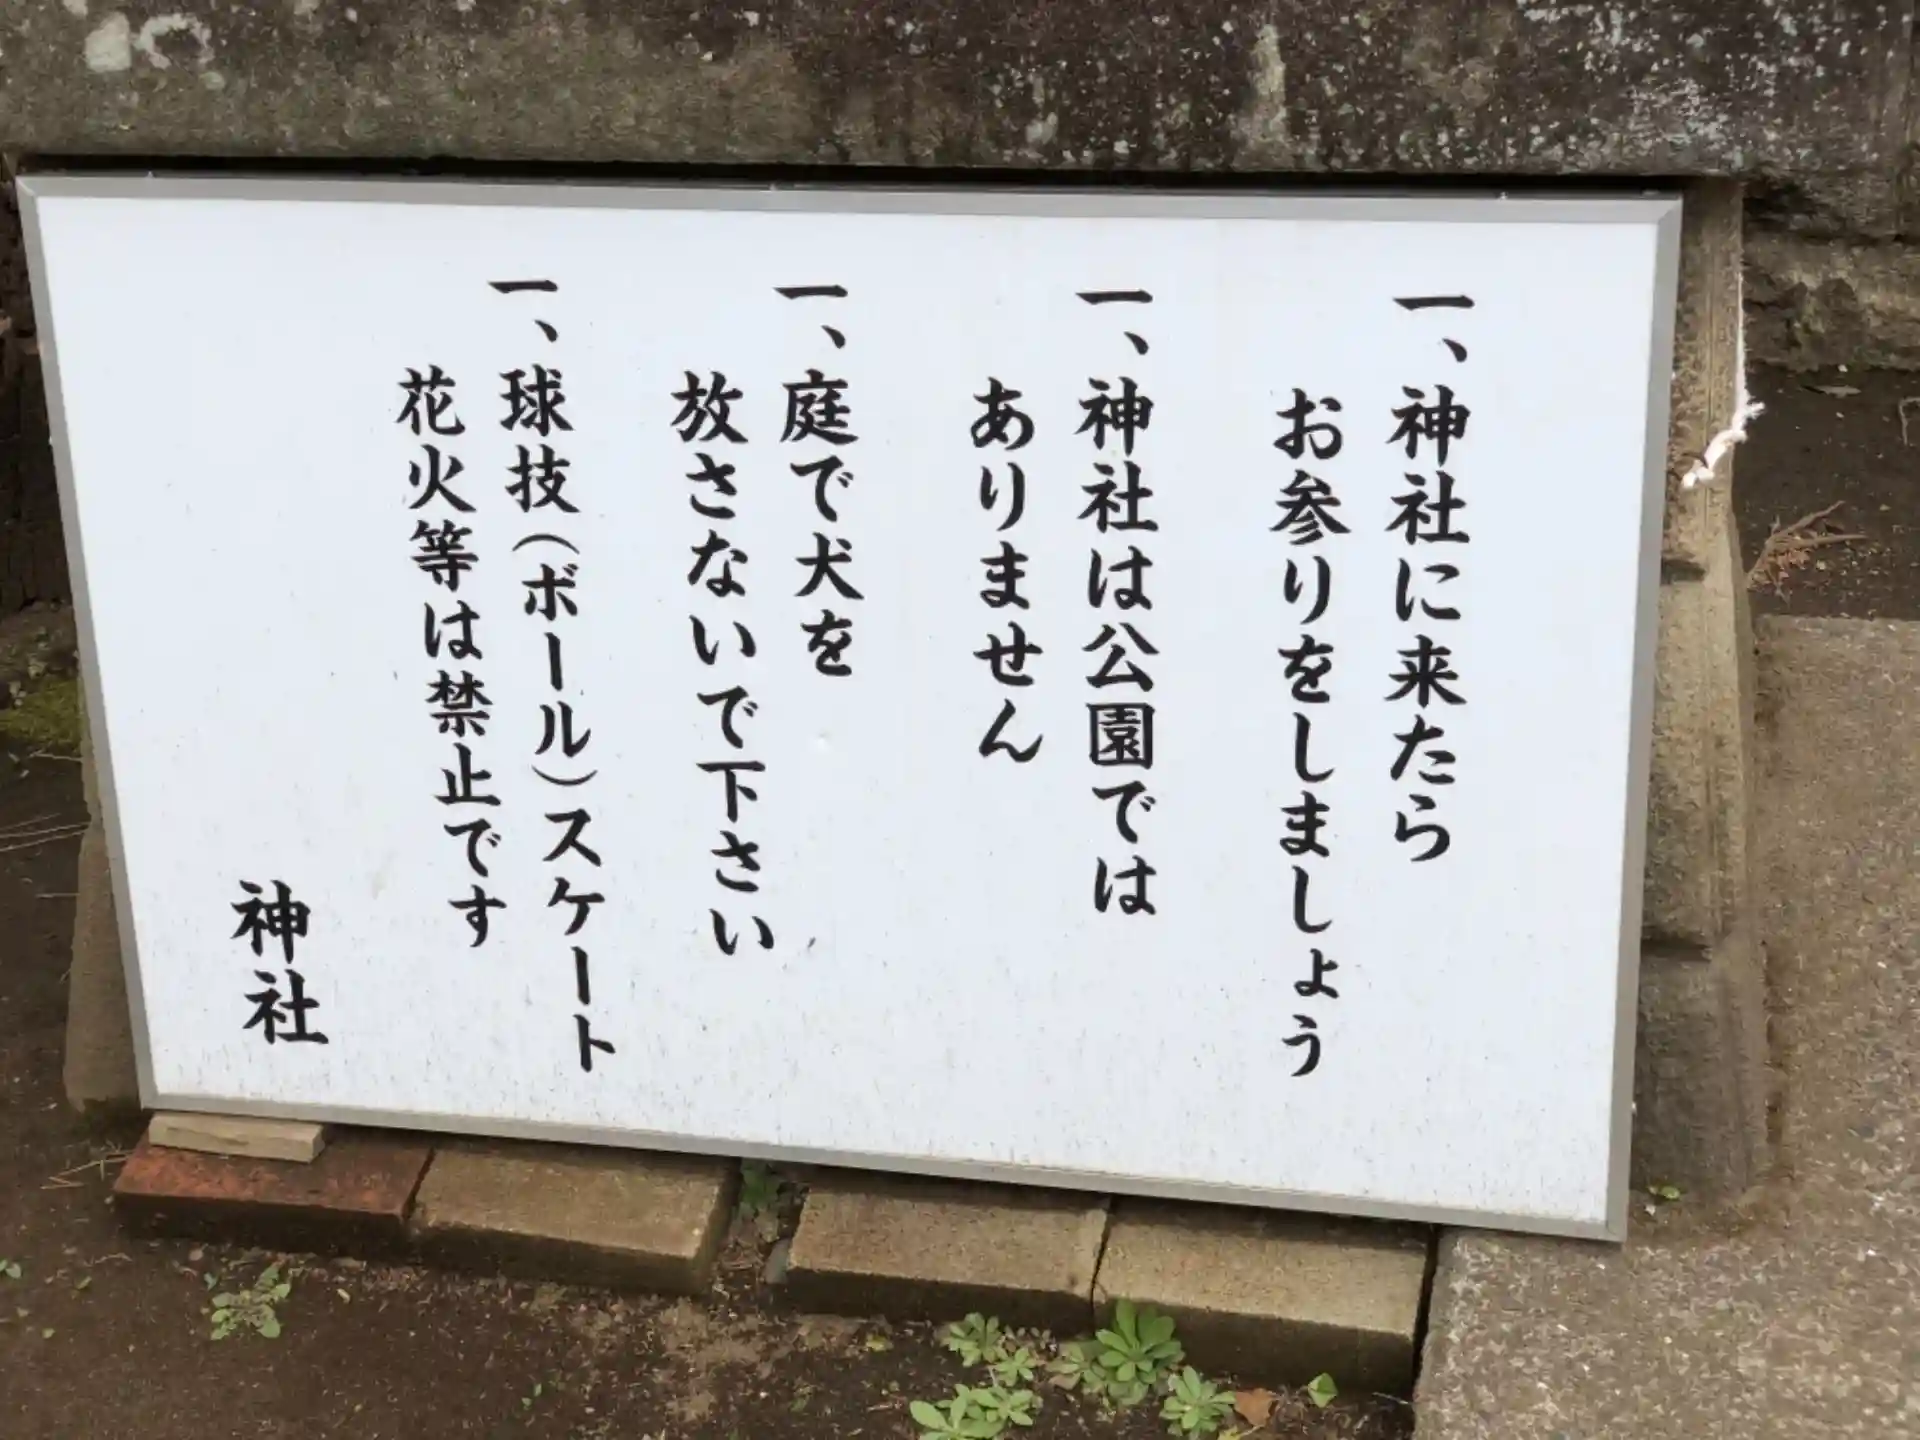 一、神社に来たら
お参りをしましょう
一、神社は公園では
ありません
一、庭で犬を
放さないで下さい
一、球技(ボール)スケート
花火等は禁止です
神社